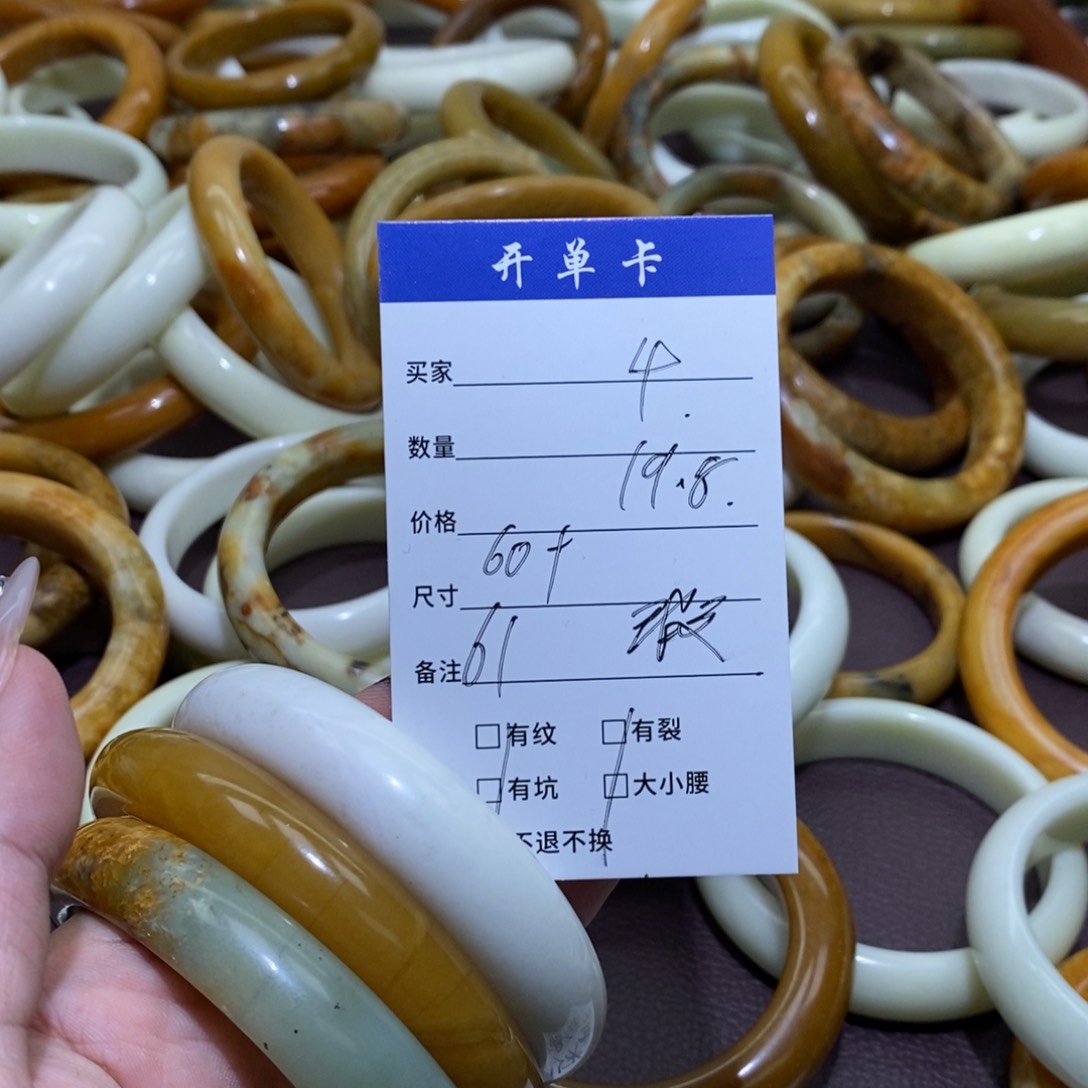 开单卡
买家
4.
数量
19.8.
价格
60+
尺寸
61
备注
□有纹 □有裂
□有坑 □大小腰
不退不换